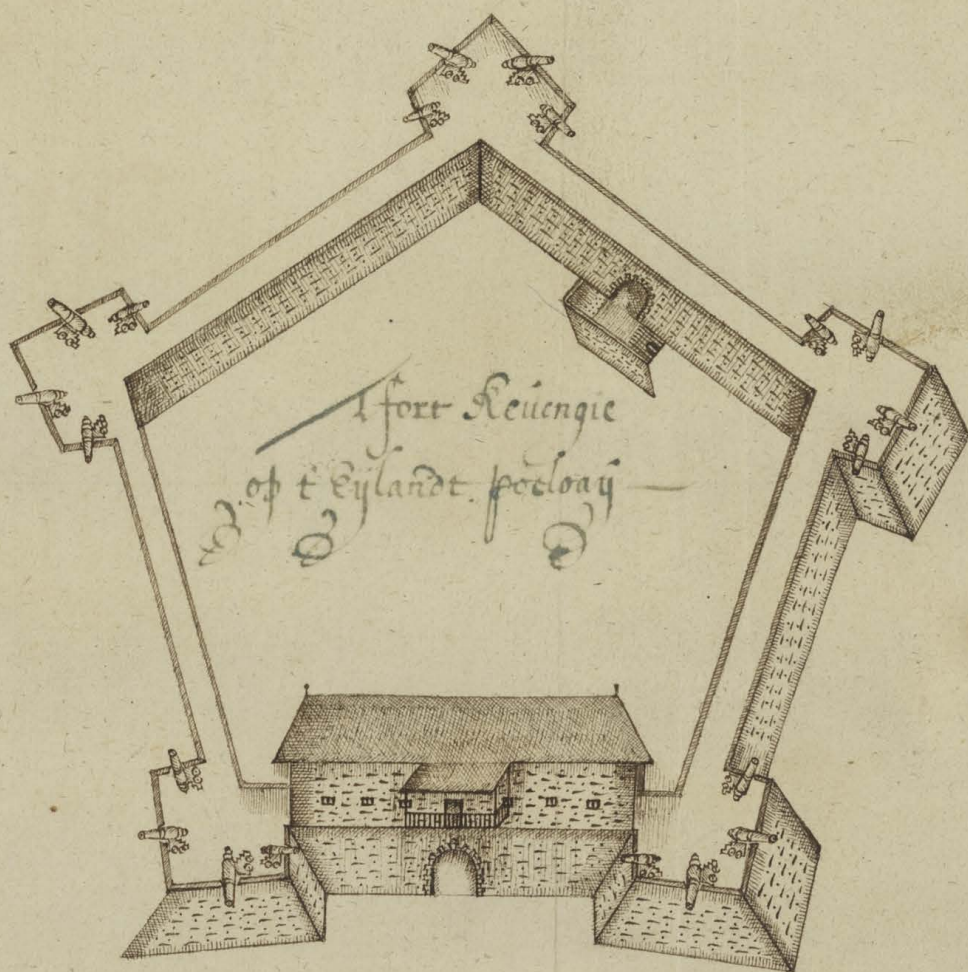 T fort Reuengie
op t Eylandt poeloaÿ